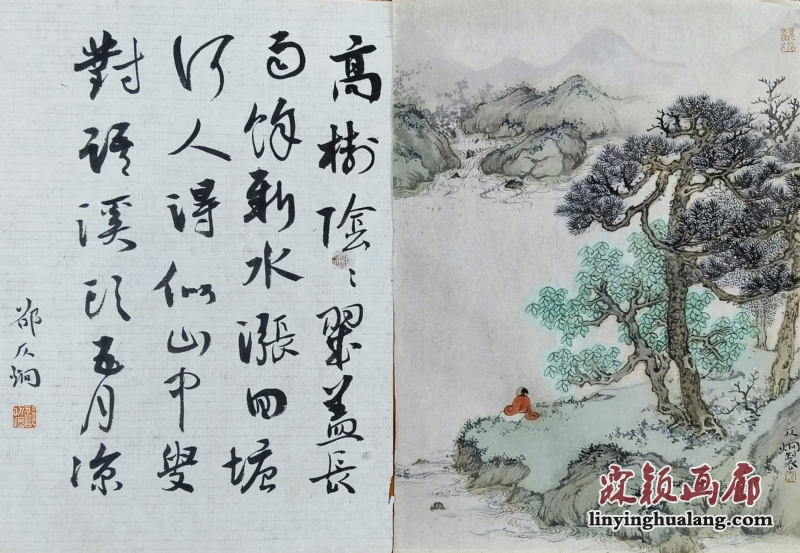 高樹陰〻翠蓋長
雨餘新水漲回塘
何人得似山中叟
對語溪頭五月涼
邵仄炯
仄炯製
霖颖画廊
linyinghualang.com